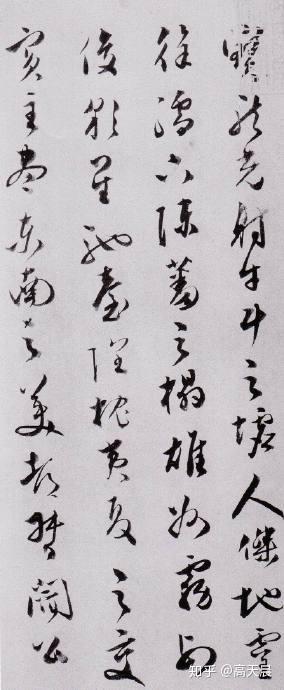 寶龍光射牛斗之墟人傑地靈
徐孺下陳蕃之榻雄州霧列
俊彩星馳臺隍枕夷夏之交
賓主盡東南之美都督閻公
知乎 @高天晨